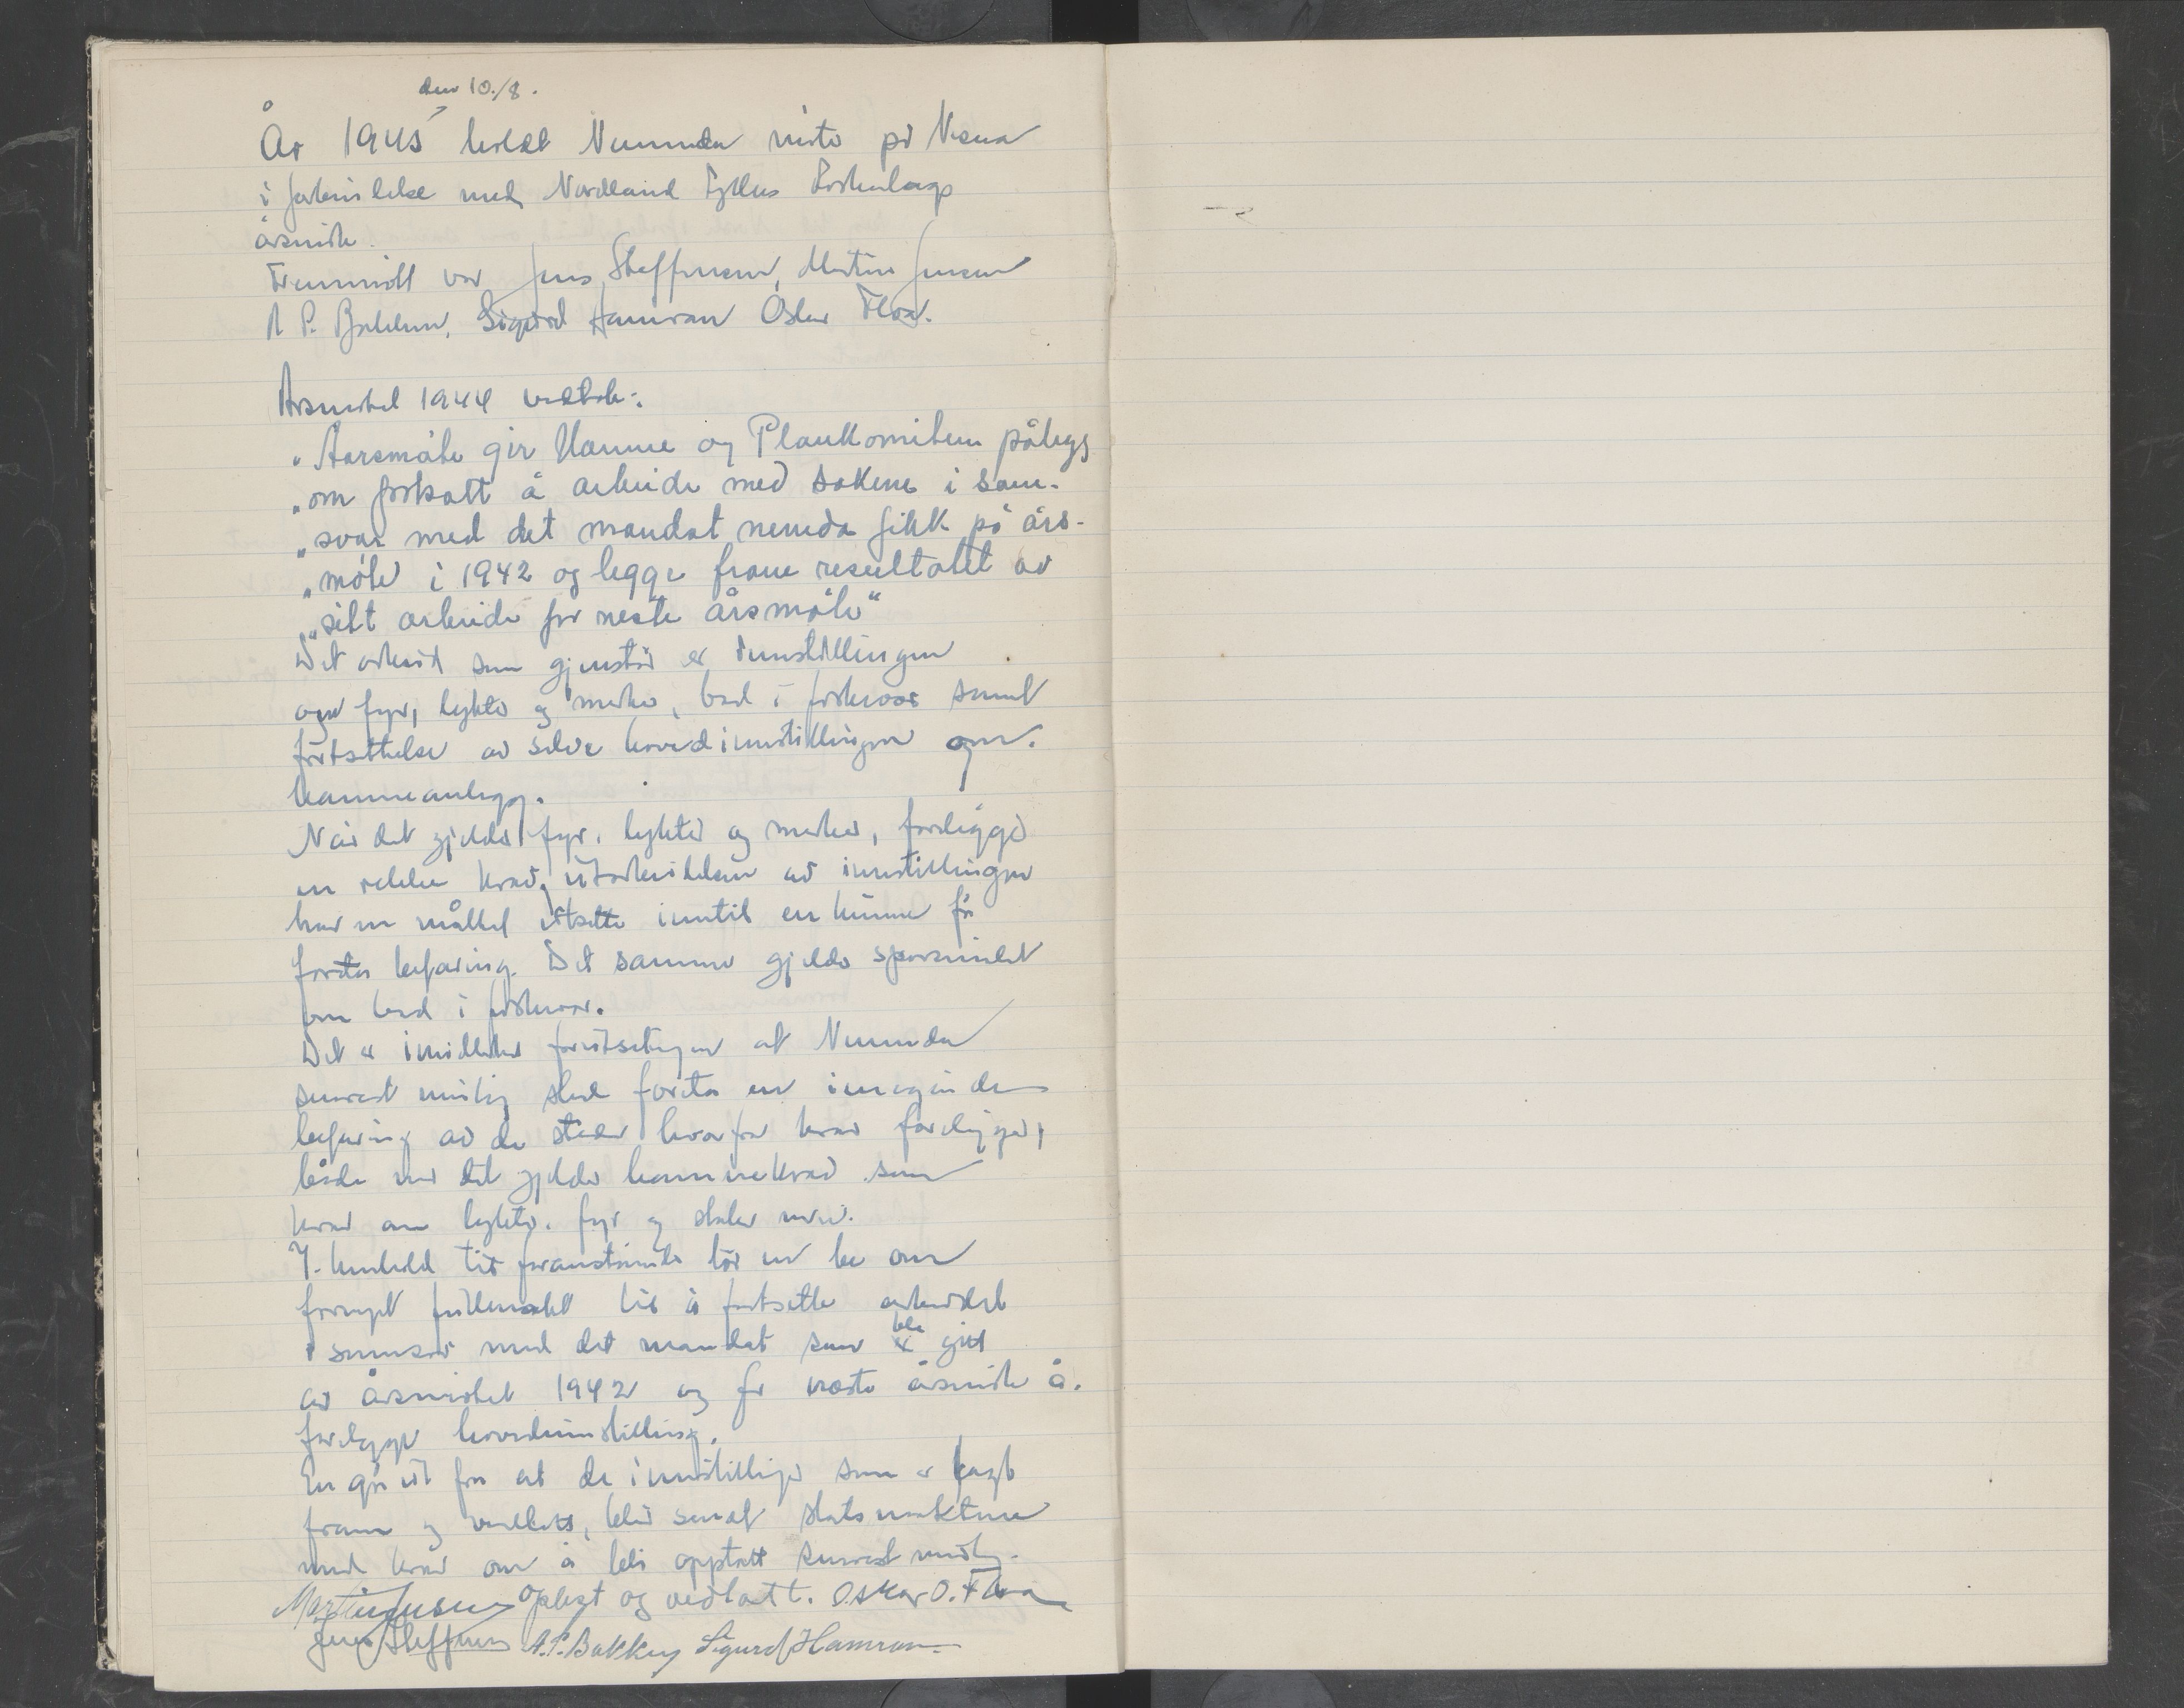 den 10./8.
År 1945 holdt Nemnda møte på Nesna
i forbindelse med Nordland Fylkes Fiskarlags
årsmøte.
Fremmøtt var Jens Steffensen, Martin Jensen
A P. Bakken, Sigurd Hamran Oskar Floa.
Årsmøtet 1944 vedtok:
„Aarsmøte gir Havne og Plankomiteen pålegg
„om forsatt å arbeide med sakene i sam-
„svar med det mandat nemda fikk på års-
„møte i 1942 og legge fram resultatet av
„sitt arbeide for neste årsmøte"
Det arbeid som gjenstår er innstillingen
om fyr, lykter og merker, bad i fiskevær samt
fortsettelse av selve hovedinnstillingen om
havneanlegg.
Når det gjelder fyr, lykter og merker, foreligger
en rekke krav, utarbeidelsen av innstillingen
har en måttet utsette inntil en kunne få
foreta befaring. Det samme gjelder spørsmålet
om bad i fiskevær.
Det er imidlertid forutsetningen at Nemnda
snarest mulig skal foreta en inngående
befaring av de steder hvorfra krav foreligger,
både når det gjelder havnekrav som
krav om lykter, fyr og staker m.v.
I henhold til foranstående tør en be om
fornyet fullmakt til å fortsette arbeidet
i samsvar med det mandat som ble gitt
av årsmøtet 1942 og for neste årsmøte å
forelegge hovedinnstilling.
En går ut fra at de innstillinger som er lagt
fram og vedtatt, blir sendt statsmaktene
med krav om å bli opptatt snarest mulig.
Martin Jensen Oplest og vedtatt. Oskar O. Floa
Jens Steffensen A.P. Bakken Sigurd Hamran